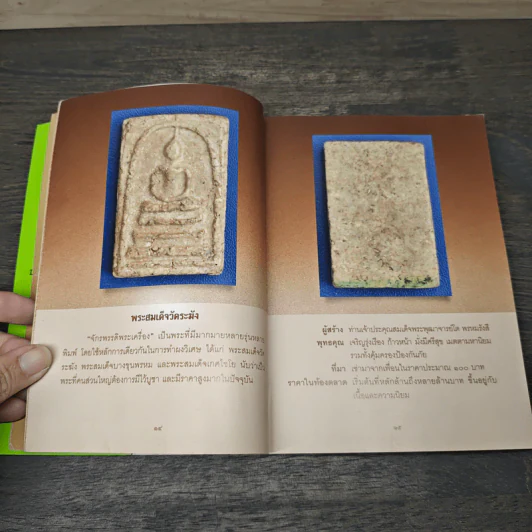 พระสมเด็จวัดระฆัง
"จักรพรรดิพระเครื่อง" เป็นพระที่มีมากมายหลายรุ่นหลาย
พิมพ์ โดยใช้หลักการเดียวกันในการทำผงวิเศษ ได้แก่ พระสมเด็จวัด
ระฆัง พระสมเด็จบางขุนพรหม และพระสมเด็จเกศไชโย นับว่าเป็น
พระที่คนส่วนใหญ่ต้องการมีไว้บูชา และมีราคาสูงมากในปัจจุบัน
๑๔
ผู้สร้าง ท่านเจ้าประคุณสมเด็จพระพุฒาจารย์โต พรหมรังสี
พุทธคุณ เจริญรุ่งเรือง ก้าวหน้า มั่งมีศรีสุข เมตตามหานิยม
รวมทั้งคุ้มครองป้องกันภัย
ที่มา เช่ามาจากเพื่อนในราคาประมาณ ๑๐๐ บาท
ราคาในท้องตลาด เริ่มต้นที่หลักล้านถึงหลายล้านบาท ขึ้นอยู่กับ
เนื้อและความนิยม
๑๕